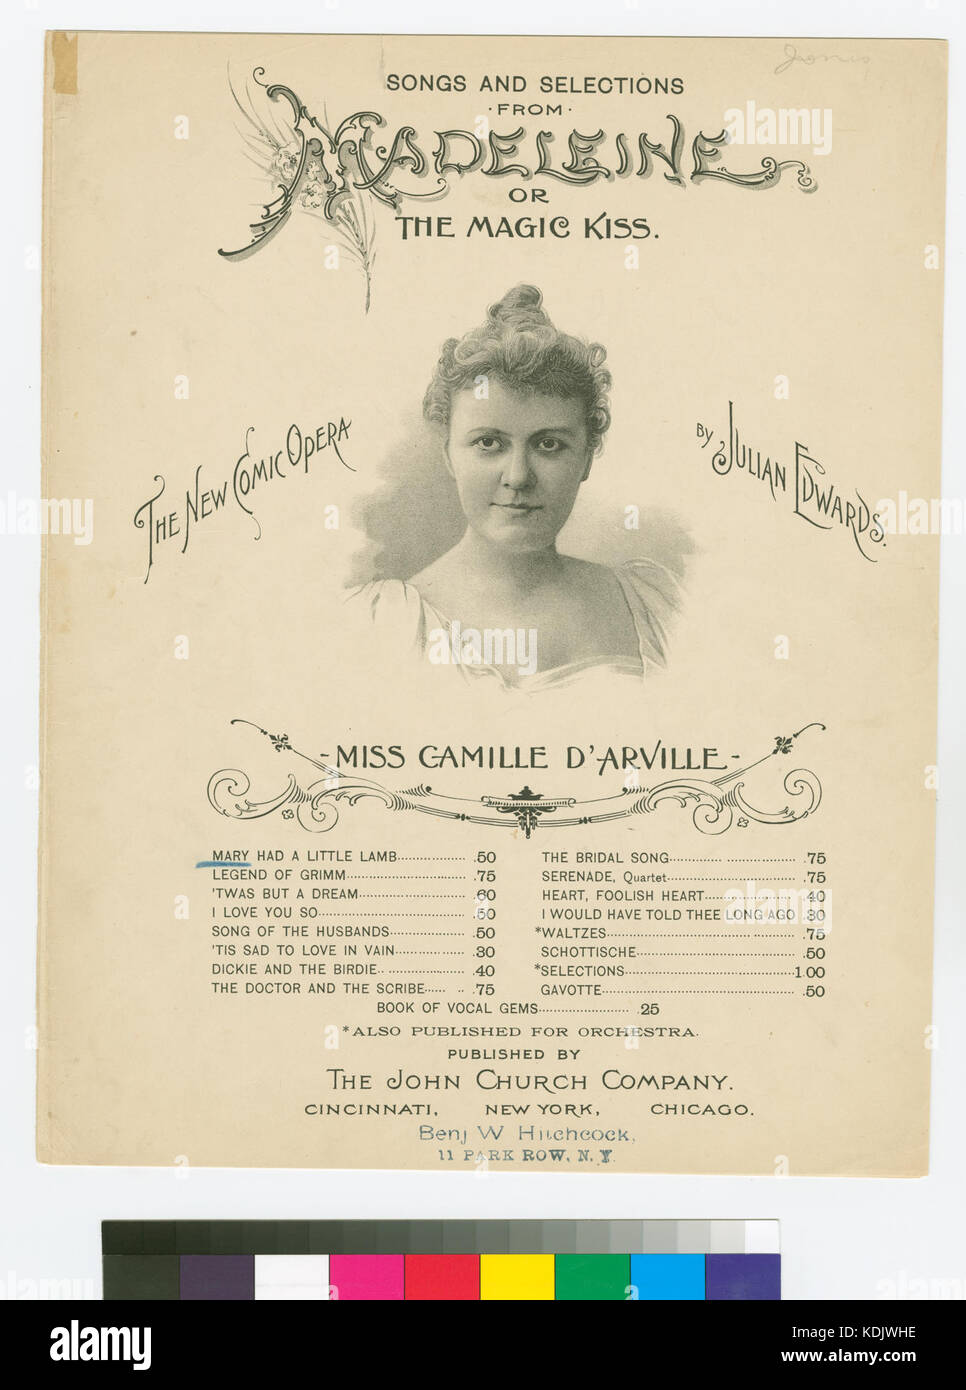 Jones
SONGS AND SELECTIONS
·FROM·
MADELEINE
OR
THE MAGIC KISS.
THE NEW COMIC OPERA
BY JULIAN EDWARDS.
-MISS CAMILLE D'ARVILLE-
MARY HAD A LITTLE LAMB .50
LEGEND OF GRIMM .75
'TWAS BUT A DREAM .60
I LOVE YOU SO .50
SONG OF THE HUSBANDS .50
'TIS SAD TO LOVE IN VAIN .30
DICKIE AND THE BIRDIE .40
THE DOCTOR AND THE SCRIBE .75
THE BRIDAL SONG .75
SERENADE, Quartet .75
HEART, FOOLISH HEART .40
I WOULD HAVE TOLD THEE LONG AGO .30
*WALTZES .75
SCHOTTISCHE .50
*SELECTIONS 1.00
GAVOTTE .50
BOOK OF VOCAL GEMS .25
*ALSO PUBLISHED FOR ORCHESTRA.
PUBLISHED BY
THE JOHN CHURCH COMPANY.
CINCINNATI, NEW YORK, CHICAGO.
Benj W Hitchcock,
11 PARK ROW, N.Y.
alamy
Image ID: KDJWHE
www.alamy.com